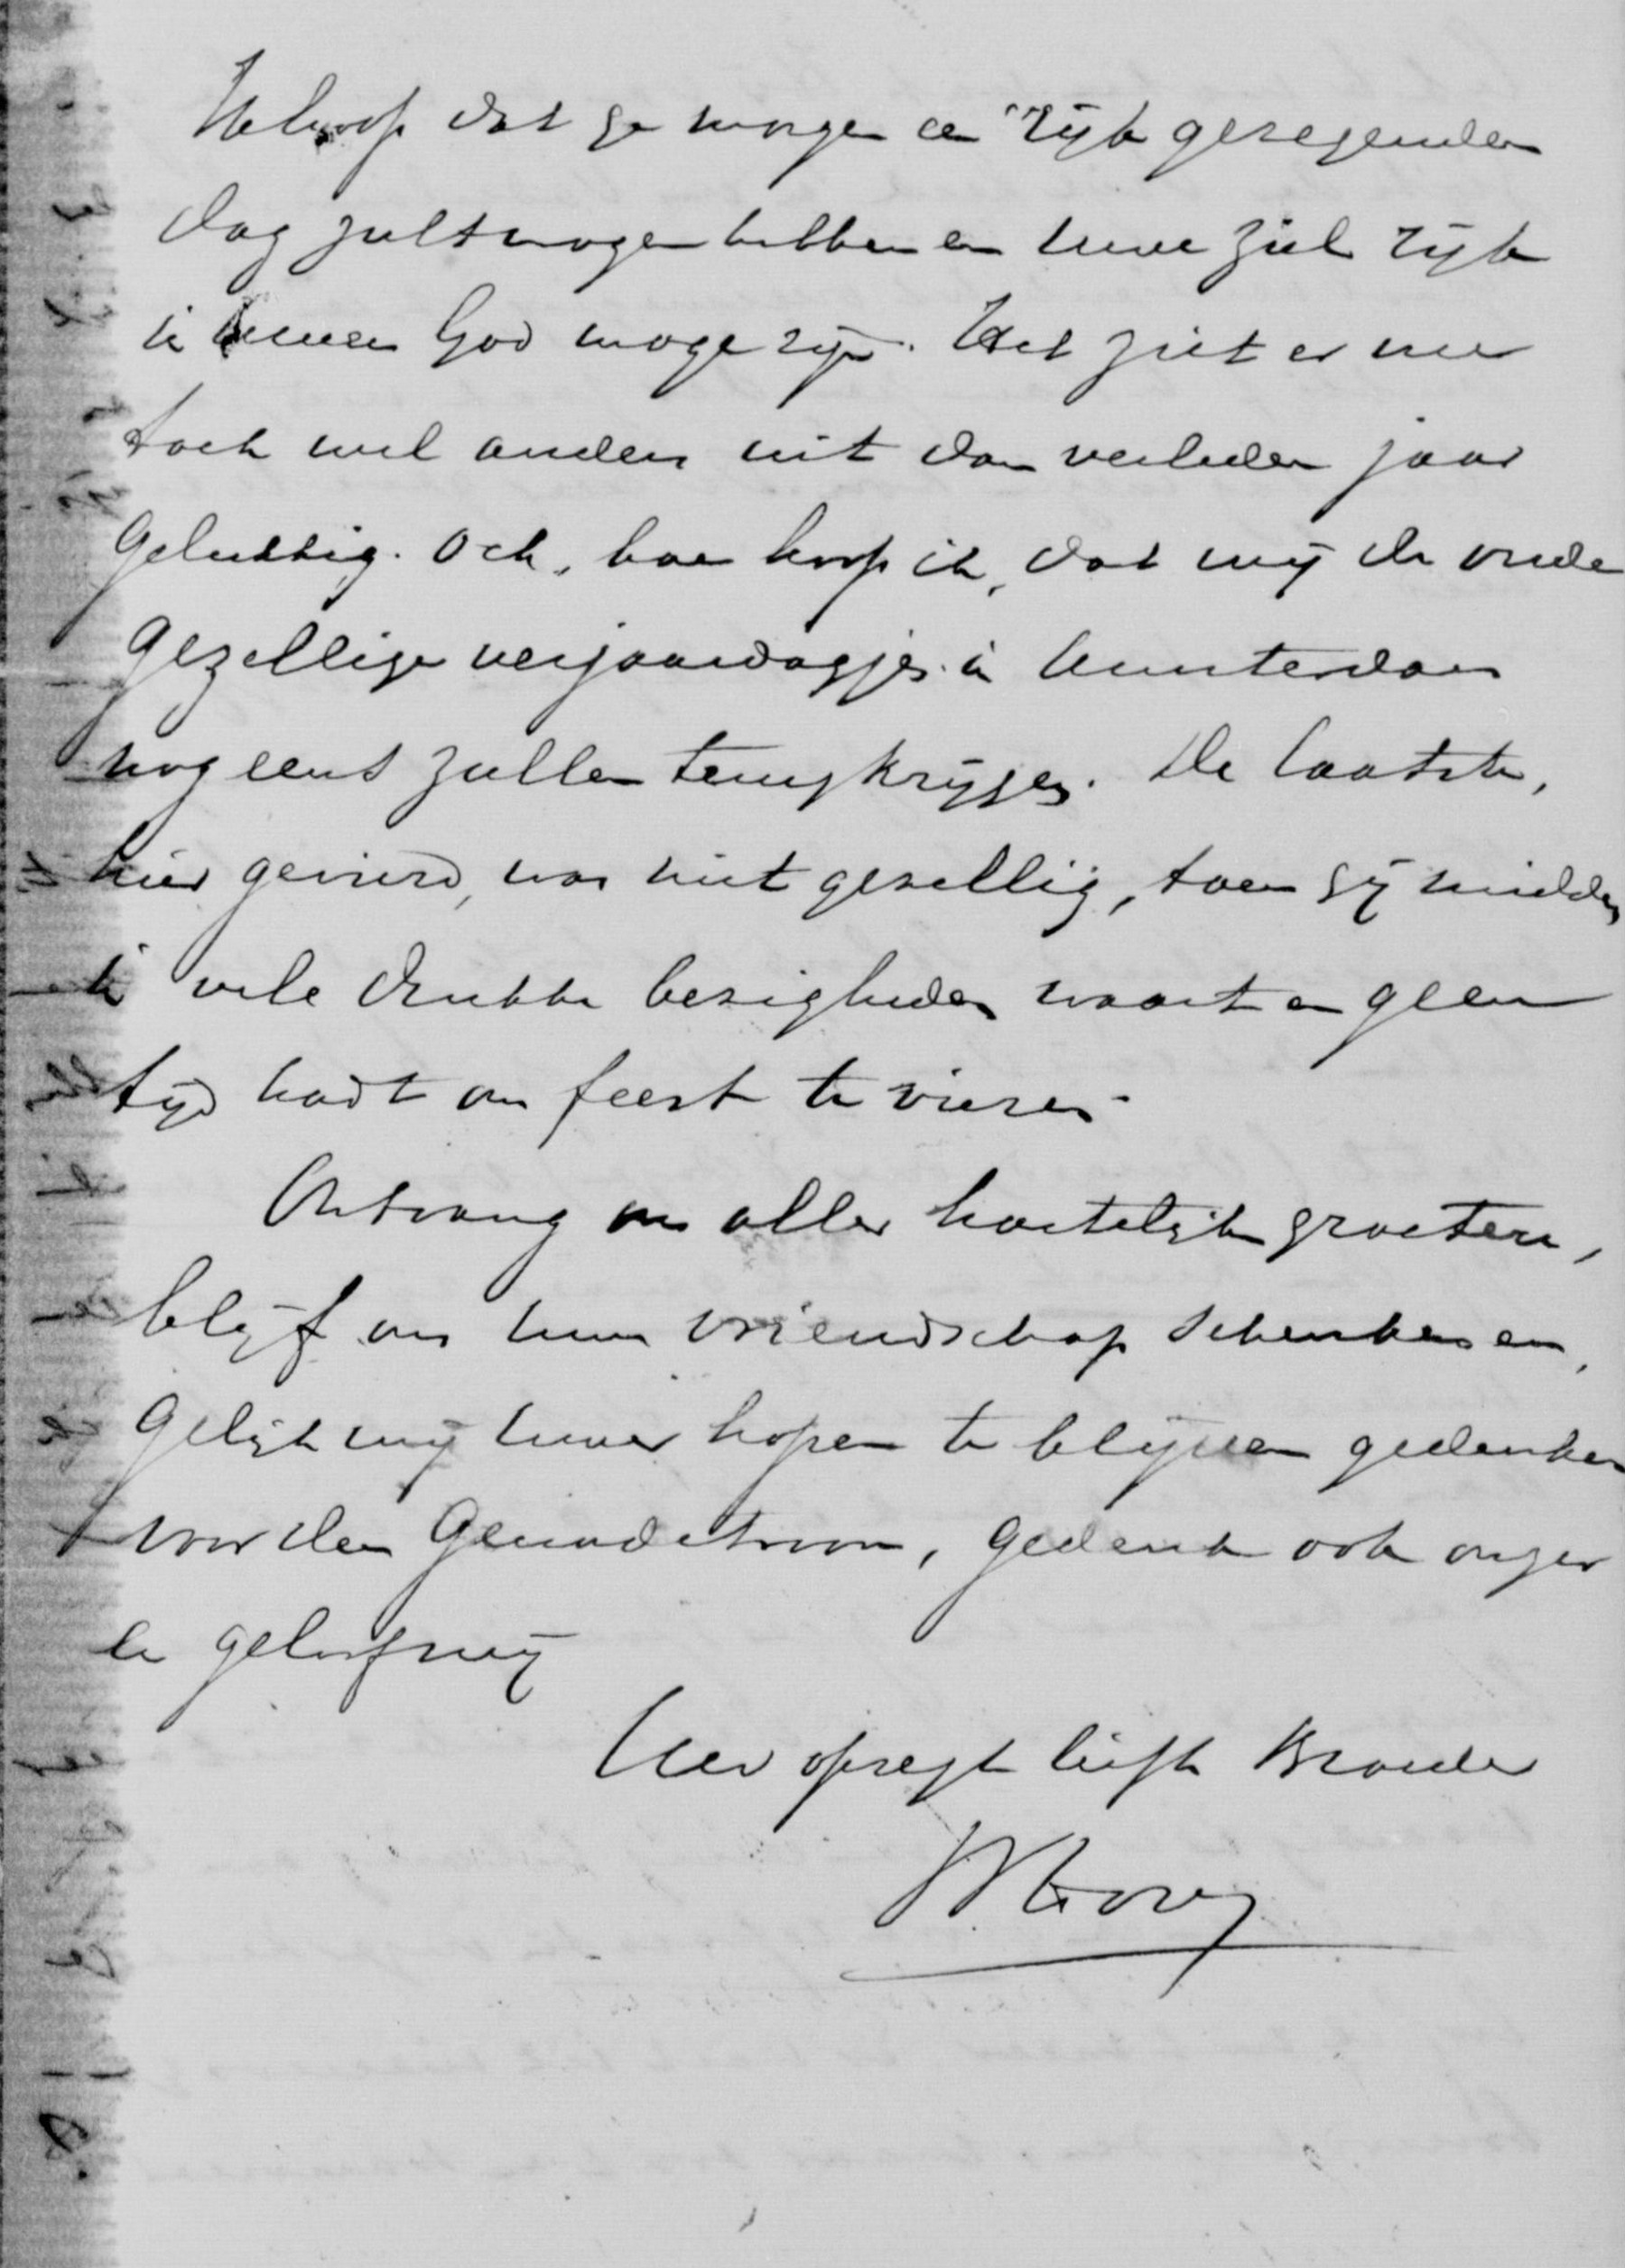 Ik hoop dat ge morgen een rijk gezegenden
dag zult mogen hebben en uwe ziel rijk
in uwen God moge zijn. Het ziet er nu
toch wel anders uit dan verleden jaar
gelukkig. Och, hoe hoop ik, dat wij de oude
gezellige verjaardagjes in Amsterdam
nog eens zullen terugkrijgen. De laatste,
hier gevierd, was niet gezellig, toen gij midden
in vele drukke bezigheden waart en geen
tijd hadt om feest te vieren.
Ontvang ons aller hartelijke groeten,
blijf ons uwe vriendschap schenken en,
gelijk wij uwer hopen te blijven gedenken
voor den Genadetroon, gedenk ook onzer
en geloof mij
Uw opregt liefh Broeder
WHovy